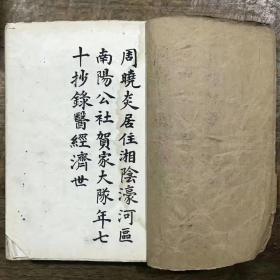 周曉炎居住湘陰濠河區
南陽公社賀家大隊年七
十抄錄醫經濟世